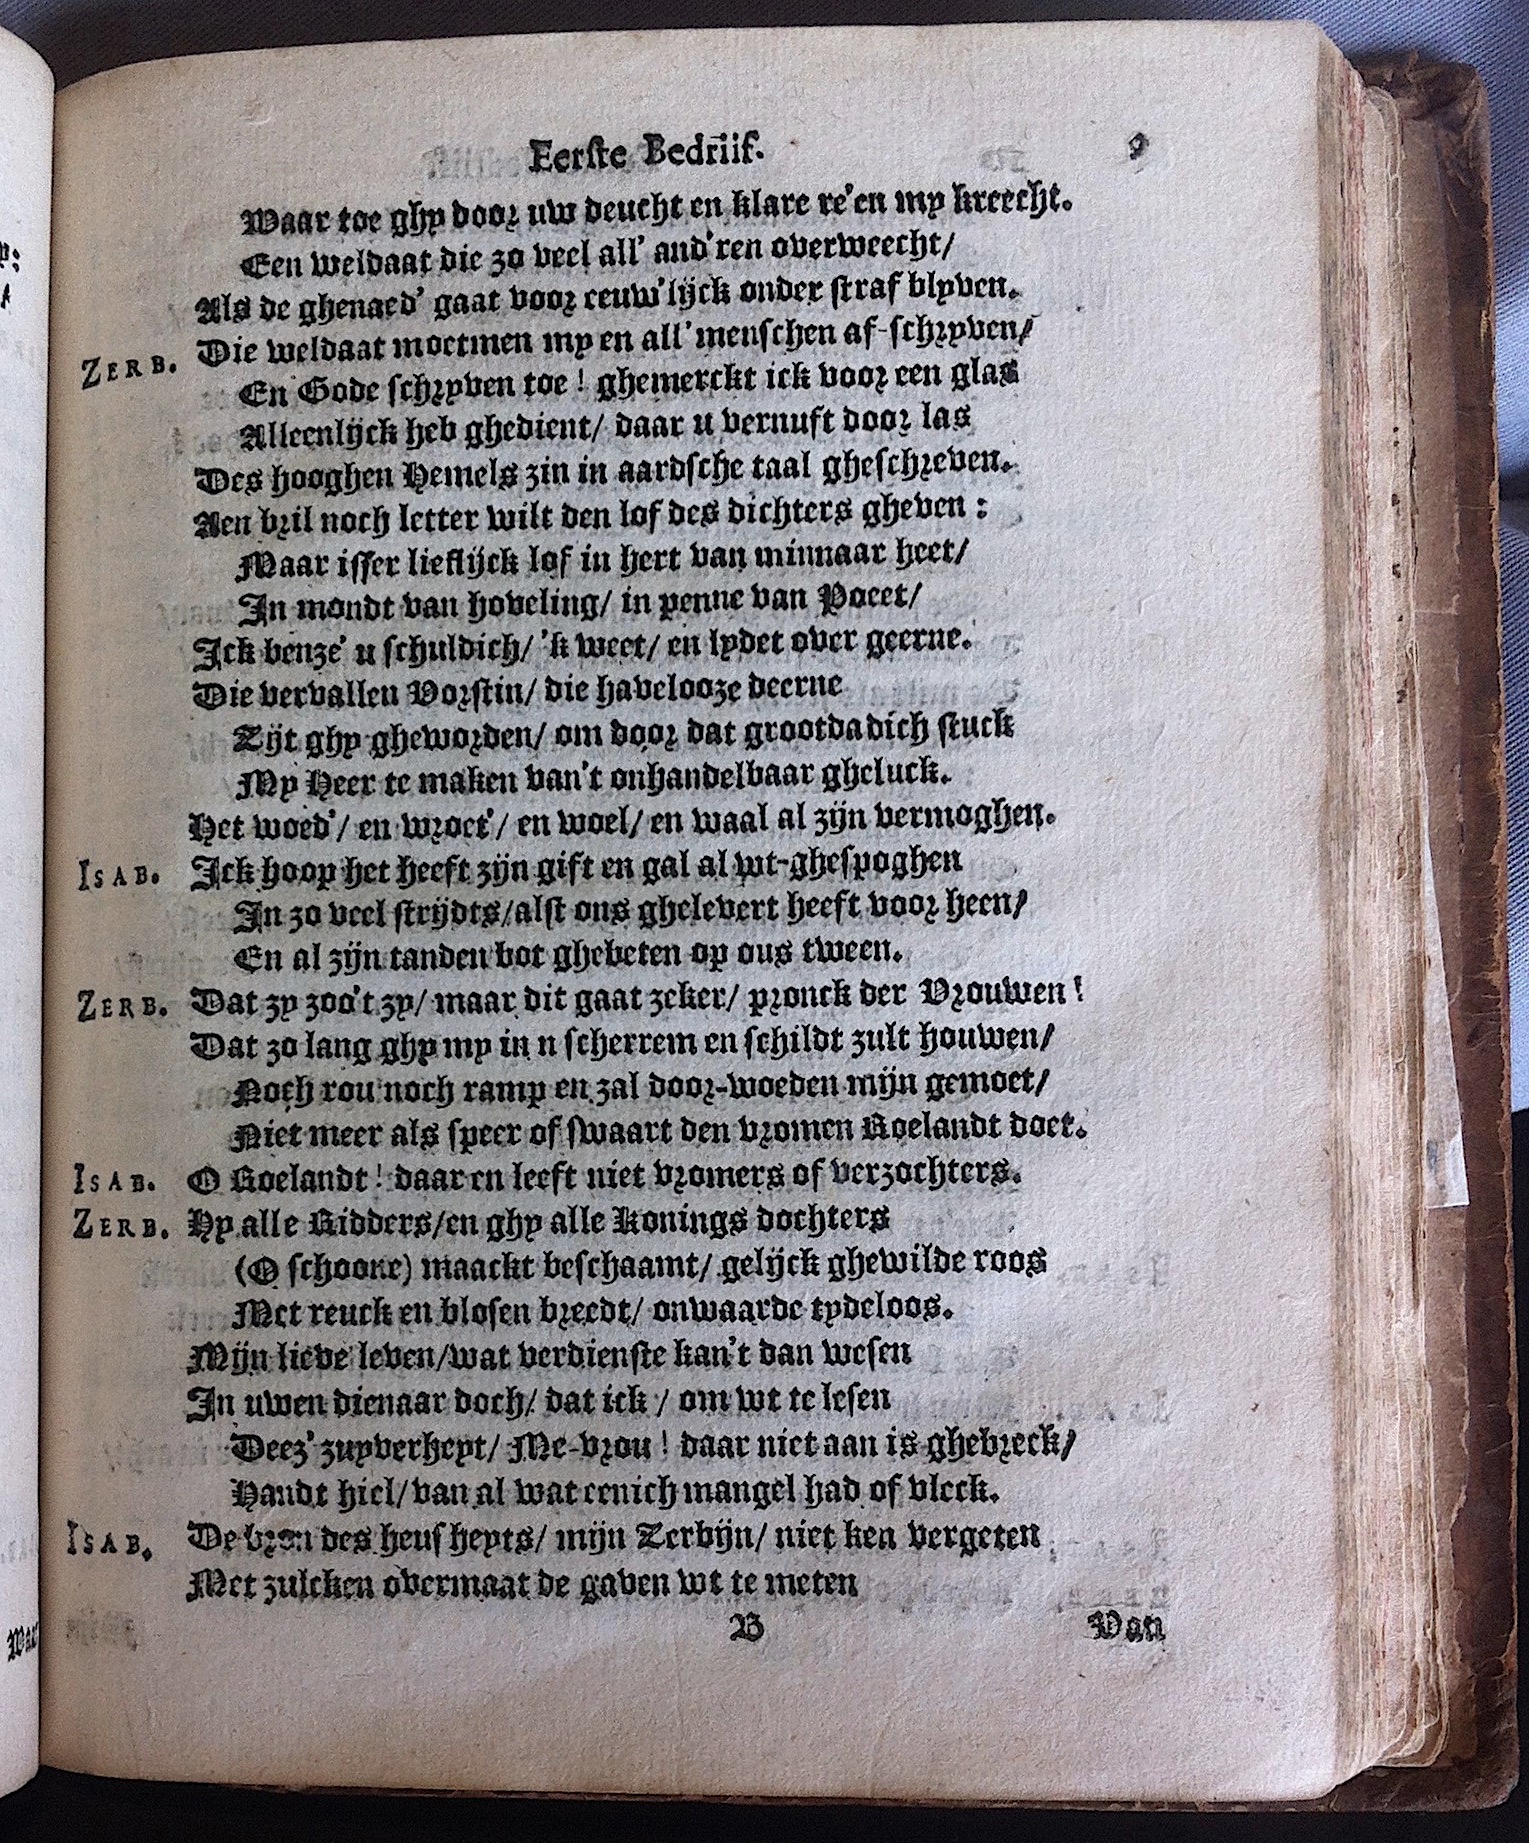 Eerste Bedriif. 9
Waar toe ghy door uw deucht en klare re'en my kreecht.
Een weldaat die zo veel all' and'ren overweecht/
Als de ghenaed' gaat voor eeuw'lijck onder straf blyven.
ZERB. Die weldaat moetmen my en all' menschen af-schryven/
En Gode schryven toe! ghemerckt ick voor een glas
Alleenlijck heb ghedient/ daar u vernuft door las
Des hooghen Hemels zin in aardsche taal gheschreven.
Aen bril noch letter wilt den lof des dichters gheven:
Maar isser lieflijck lof in hert van minnaar heet/
In mondt van hoveling/ in penne van Poeet/
Ick benze' u schuldich/ 'k weet/ en lydet over geerne.
Die vervallen Vorstin/ die havelooze deerne
Zijt ghy gheworden/ om door dat grootdadich stuck
My Heer te maken van't onhandelbaar gheluck.
Het woed'/ en wroet'/ en woel/ en waal al zijn vermoghen.
ISAB. Ick hoop het heeft zijn gift en gal al wt-ghespoghen
In zo veel strijdts/alst ons ghelevert heeft voor heen/
En al zijn tanden bot ghebeten op ons tween.
ZERB. Dat zy zoo't zy/ maar dit gaat zeker/ pronck der Vrouwen!
Dat zo lang ghy my in u scherrem en schildt zult houwen/
Noch rou noch ramp en zal door-woeden mijn gemoet/
Niet meer als speer of swaart den vromen Roelandt doet.
ISAB. O Roelandt! daar en leeft niet vromers of verzochters.
ZERB. Hy alle Ridders/en ghy alle Konings dochters
(O schoone) maackt beschaamt/ gelijck ghewilde roos
Met reuck en blosen breedt/ onwaarde tydeloos.
Mijn lieve leven/wat verdienste kan't dan wesen
In uwen dienaar doch/ dat ick / om wt te lesen
Deez' zuyverheyt/ Me-vrou! daar niet aan is ghebreck/
Handt hiel/van al wat eenich mangel had of vleck.
ISAB. De bron des heusheyts/ mijn Zerbijn/ niet ken vergeten
Met zulcken overmaat de gaven wt te meten
B Van